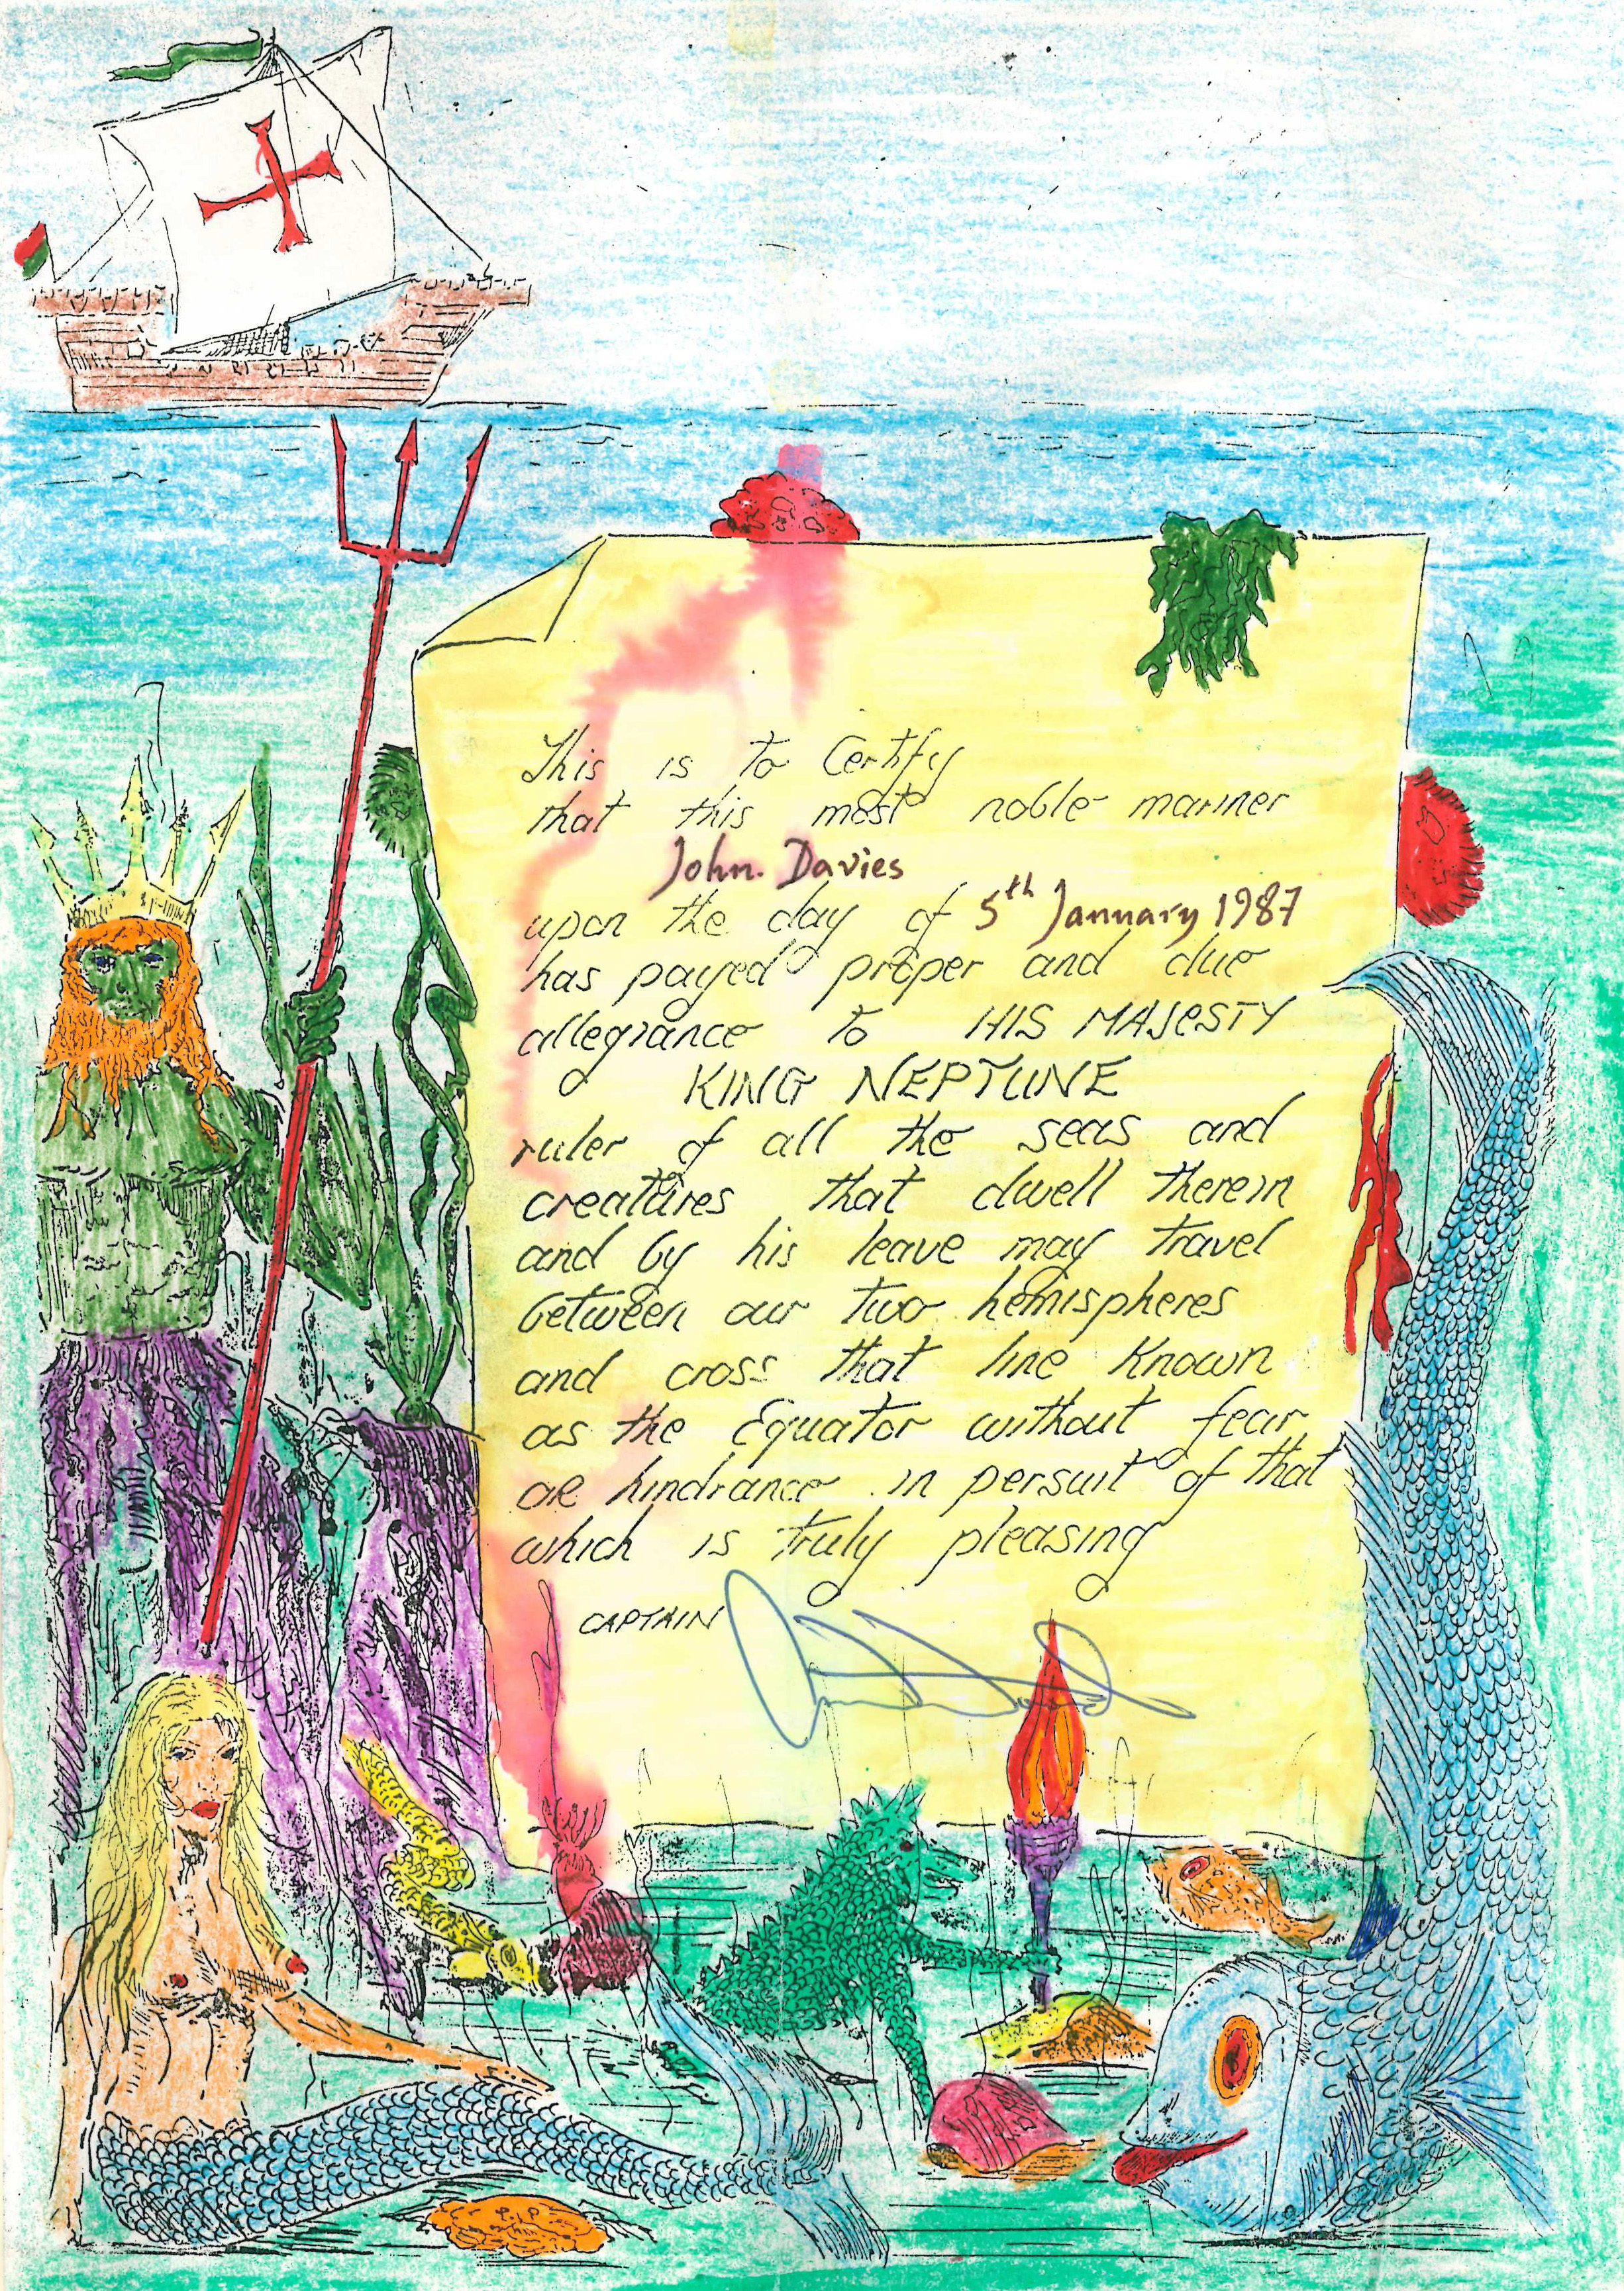 This is to Certify
that this most noble mariner
John. Davies
upon the day of 5th January 1987
has payed proper and due
allegiance to HIS MAJESTY
KING NEPTUNE
ruler of all the seas and
creatures that dwell therein
and by his leave may travel
between our two hemispheres
and cross that line known
as the Equator without fear
or hindrance in persuit of that
which is truly pleasing
CAPTAIN